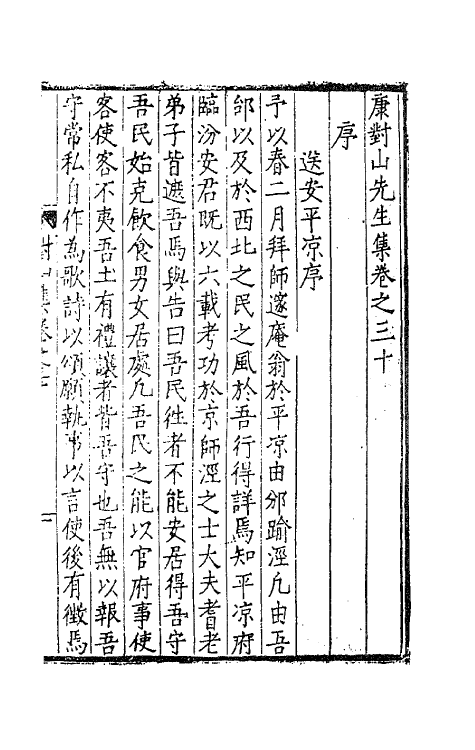 康對山先生集卷之三十
序
送安平凉序
予以春二月拜師邃庵翁於平凉由邠踰涇凡由吾
邰以及於西北之民之風於吾行得詳焉知平凉府
臨汾安君既以六載考功於京師涇之士大夫耆老
弟子皆遮吾馬與告曰吾民徃者不能安居得吾守
吾民始克飲食男女居處凡吾民之能以官府事使
客使客不夷吾土有禮讓者皆吾守也吾無以報吾
守常私自作為歌詩以頌願執事以言使後有徵焉